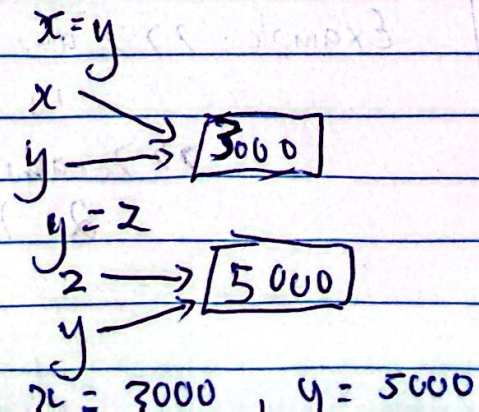 x = y
x
y
3000
y = z
z
5000
y
x = 3000, y = 5000